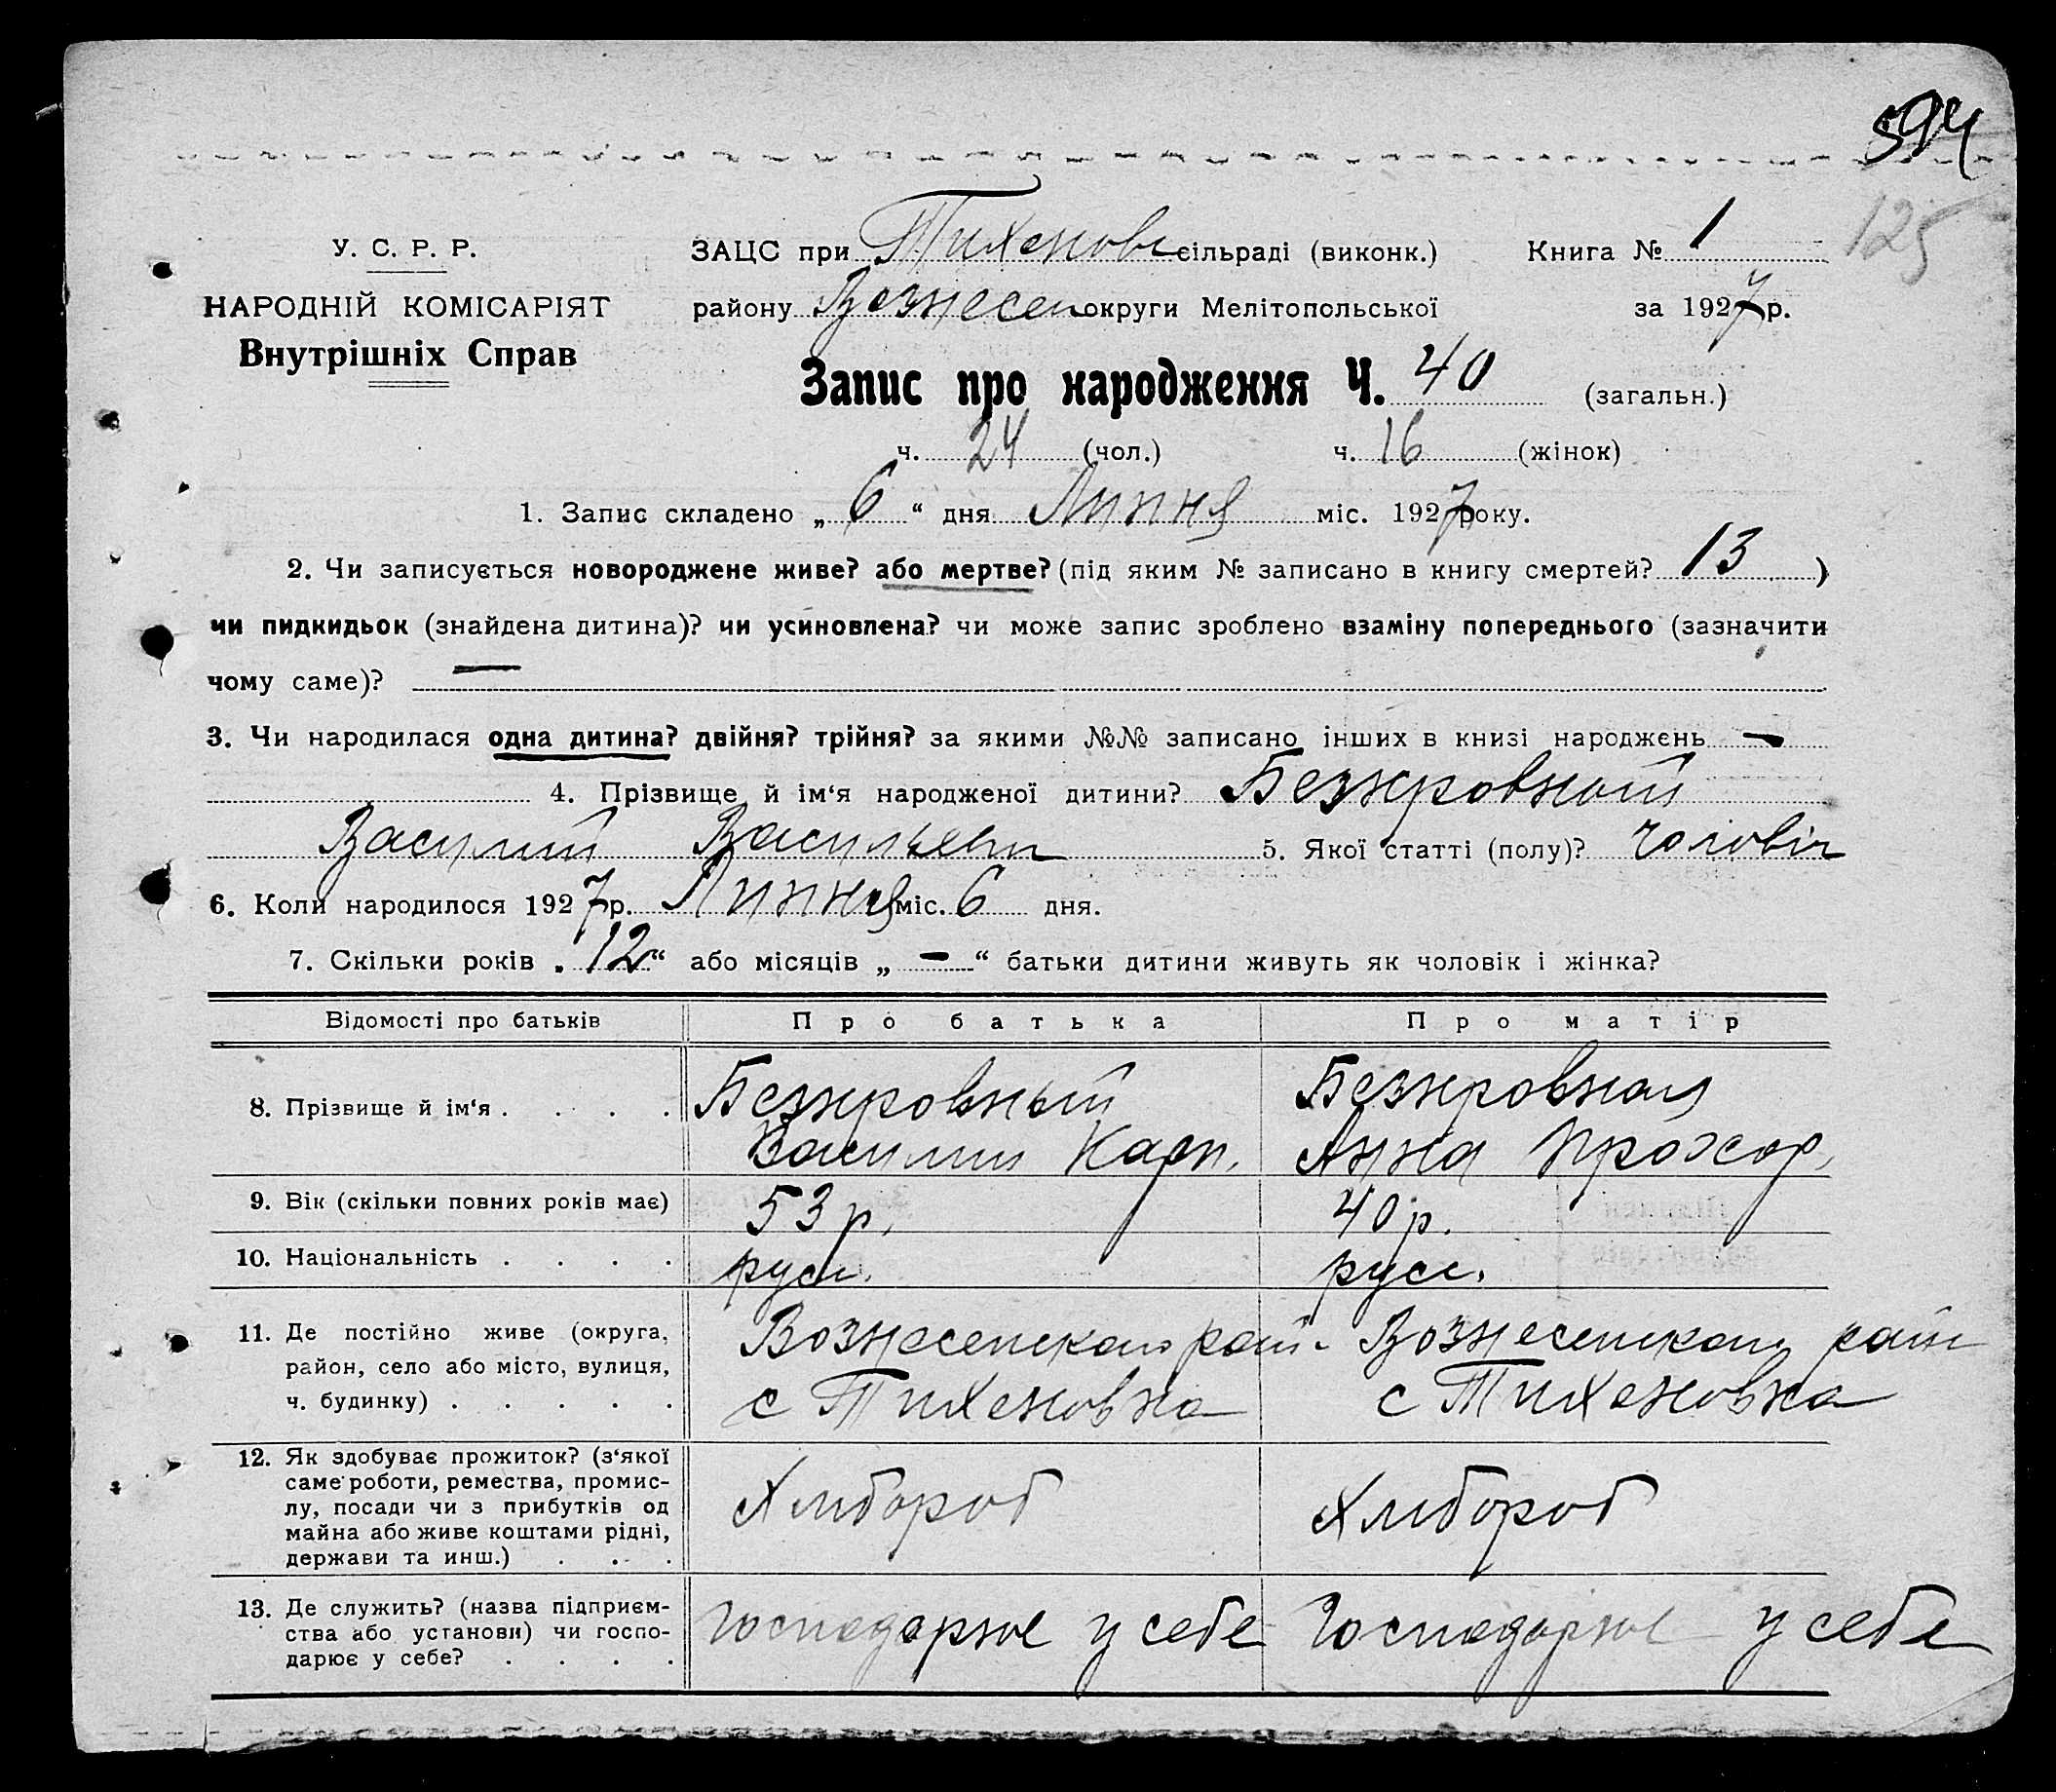 594
125
У. С. Р. Р.
НАРОДНІЙ КОМІСАРІЯТ
Внутрішніх Справ
ЗАЦС при Тихенов сільраді (виконк.) Книга № 1
району Вознесен округи Мелітопольської за 1927 р.
Запис про народження Ч. 40 (загальн.)
ч. 24 (чол.) ч. 16 (жінок)
1. Запис складено „ 6 “ дня Липня міс. 1927 року.
2. Чи записується новороджене живе? або мертве? (під яким № записано в книгу смертей? 13 )
чи пидкидьок (знайдена дитина)? чи усиновлена? чи може запис зроблено взаміну попереднього (зазначити
чому саме)? —
3. Чи народилася одна дитина? двійня? трійня? за якими №№ записано інших в книзі народжень —
4. Прізвище й ім‘я народженої дитини? Безкровный
Василий Васильевич 5. Якої статті (полу)? чоловіч
6. Коли народилося 1927 р. Липня міс. 6 дня.
7. Скільки років „ 12 “ або місяців „ — “ батьки дитини живуть як чоловік і жінка?
Відомості про батьків Про батька Про матір
8. Прізвище й ім‘я . . . . Безкровный Безкровная
Василий Карп. Анна Прохор.
9. Вік (скільки повних років має) 53 р. 40 р.
10. Національність . . . . русс. русс.
11. Де постійно живе (округа, Вознесенского рай- Вознесенского рай
район, село або місто, вулиця, с Тихеновка с Тихеновка
ч. будинку) . . . . .
12. Як здобуває прожиток? (з‘якої
саме роботи, ремества, промис-
лу, посади чи з прибутків од Хлібороб Хлібороб
майна або живе коштами рідні,
держави та инш.) . . .
13. Де служить? (назва підприєм-
ства або установи) чи госпо- Господарює у себе Господарює у себе
дарює у себе? . . . .